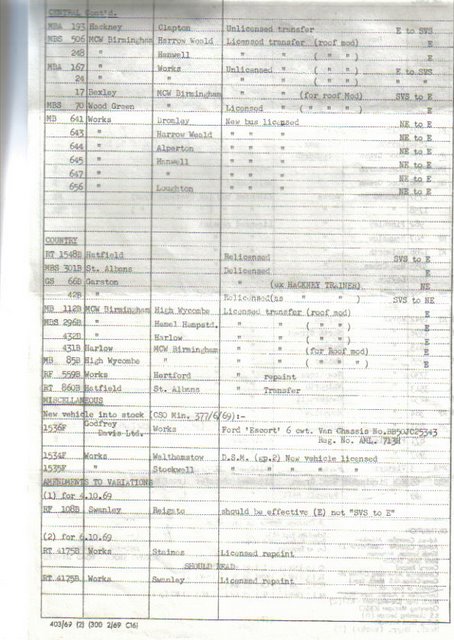 CENTRAL Cont'd.
MBA 193 Hackney Clapton Unlicensed transfer E to SVS
MBS 506 MCW Birmingham Harrow Weald Licensed transfer (roof mod) E
248 " Hanwell " " ( " " ) E
MBA 167 " Works Unlicensed " ( " " ) E to SVS
24 " " " " ( " " ) " "
17 Bexley MCW Birmingham " " (for roof Mod) SVS to E
MBS 70 Wood Green " Licensed " ( " " " ) E
MB 641 Works Bromley New bus licensed NE to E
643 " Harrow Weald " " " NE to E
644 " Alperton " " " NE to E
645 " Hanwell " " " NE to E
647 " " " " " NE to E
656 " Loughton " " " NE to E
COUNTRY
RT 1548B Hatfield Relicensed SVS to E
MBS 301B St. Albans Delicensed E
GS 66B Garston " (ex HACKNEY TRAINER) NE
42B " Relicensed(as " " ) SVS to NE
MB 112B MCW Birmingham High Wycombe Licensed transfer (roof mod) E
MBS 296B " Hemel Hempstd. " " ( " " ) E
432B " Harlow " " ( " " ) E
431B Harlow MCW Birmingham " " (for Roof mod) E
MB 85B High Wycombe " " " ( " " " ) E
RF 559B Works Hertford " repaint E
RT 860B Hatfield St. Albans " Transfer E
MISCELLANEOUS
New vehicle into stock (CSO Min. 377/6/69):-
1536F Godfrey Davis Ltd. Works Ford 'Escort' 6 cwt. Van Chassis No.BB50JC25343
Reg. No. AML. 713H
1534F Works Walthamstow D.S.M. (ap.2) New vehicle licensed
1535F " Stockwell " " " " "
AMENDMENTS TO VARIATIONS
(1) for 4.10.69
RF 108B Swanley Reigate should be effective (E) not "SVS to E"
(2) for 6.10.69
RT 4175B Works Staines Licensed repaint
SHOULD READ
RT 4175B Works Swanley Licensed repaint
403/69 (2) (300 2/69 C16)